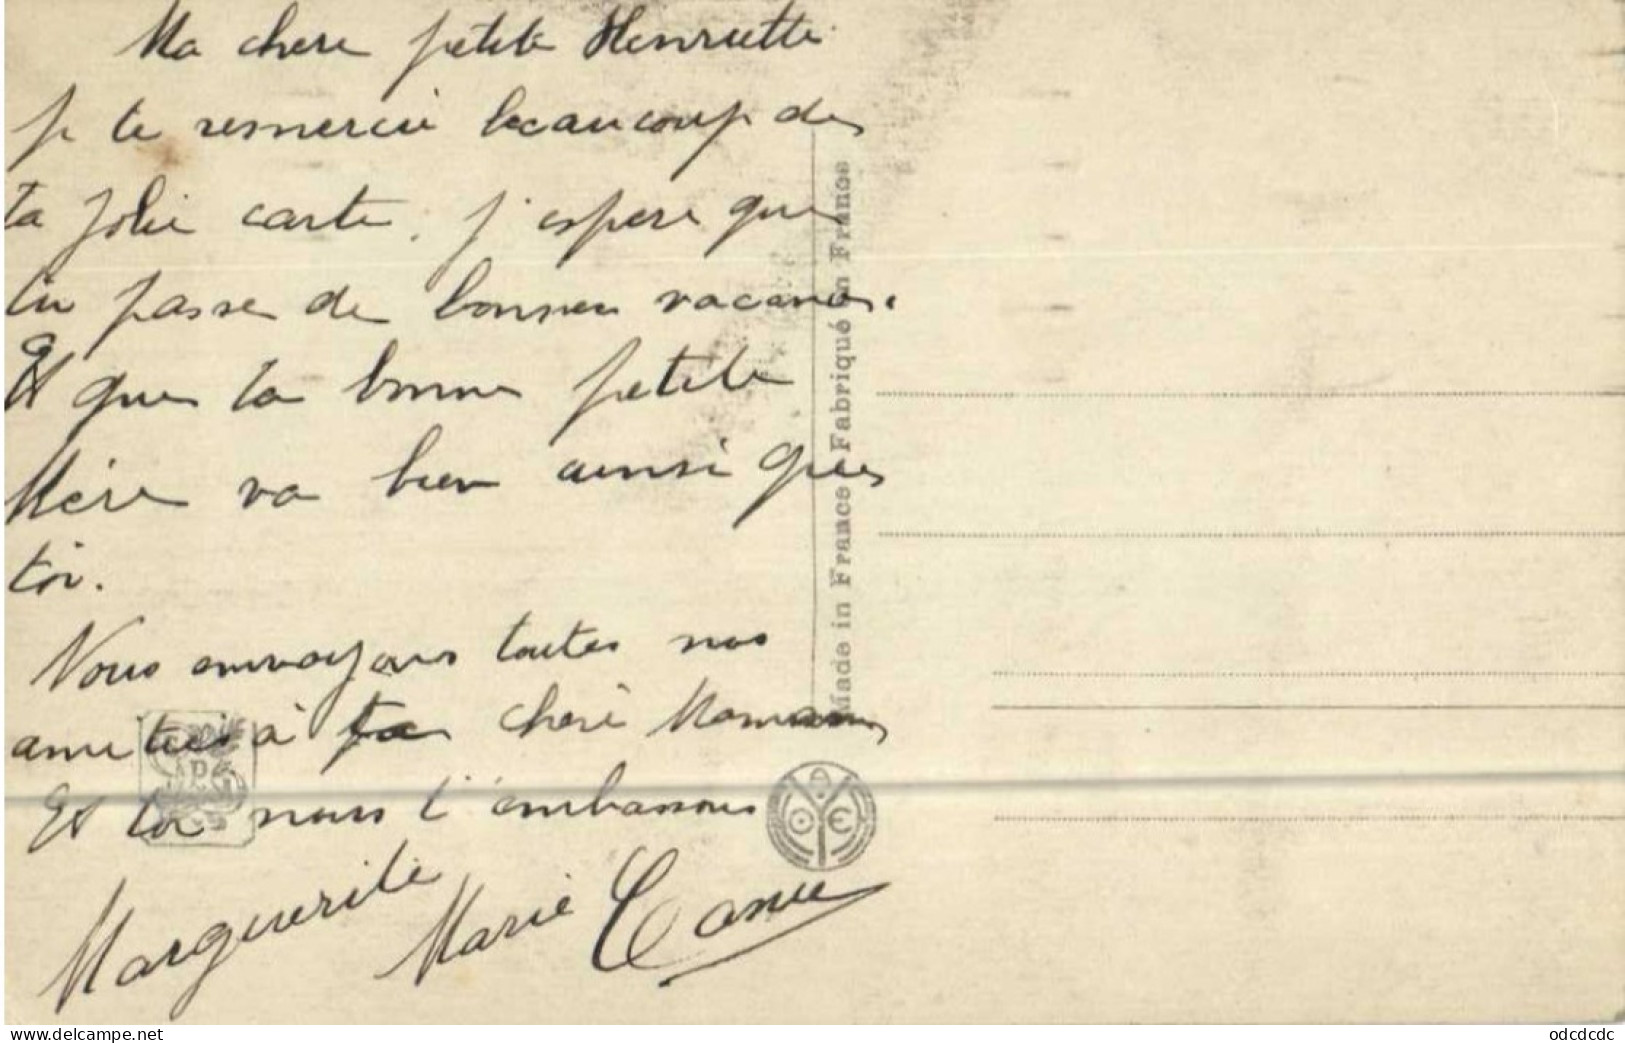 Ma chere petite Henriette
Je te remercie beaucoup de
ta jolie carte. j'espere que
tu passe de bonnes vacances.
Et que ta bonne petite
Mère va bien ainsi que
toi.
Nous envoyons toutes nos
amitiés à ta chere Maman
Et toi nous t'embassons
Marguerite Marie
Made in France Fabriqué en France
www.delcampe.net
odcdcdc